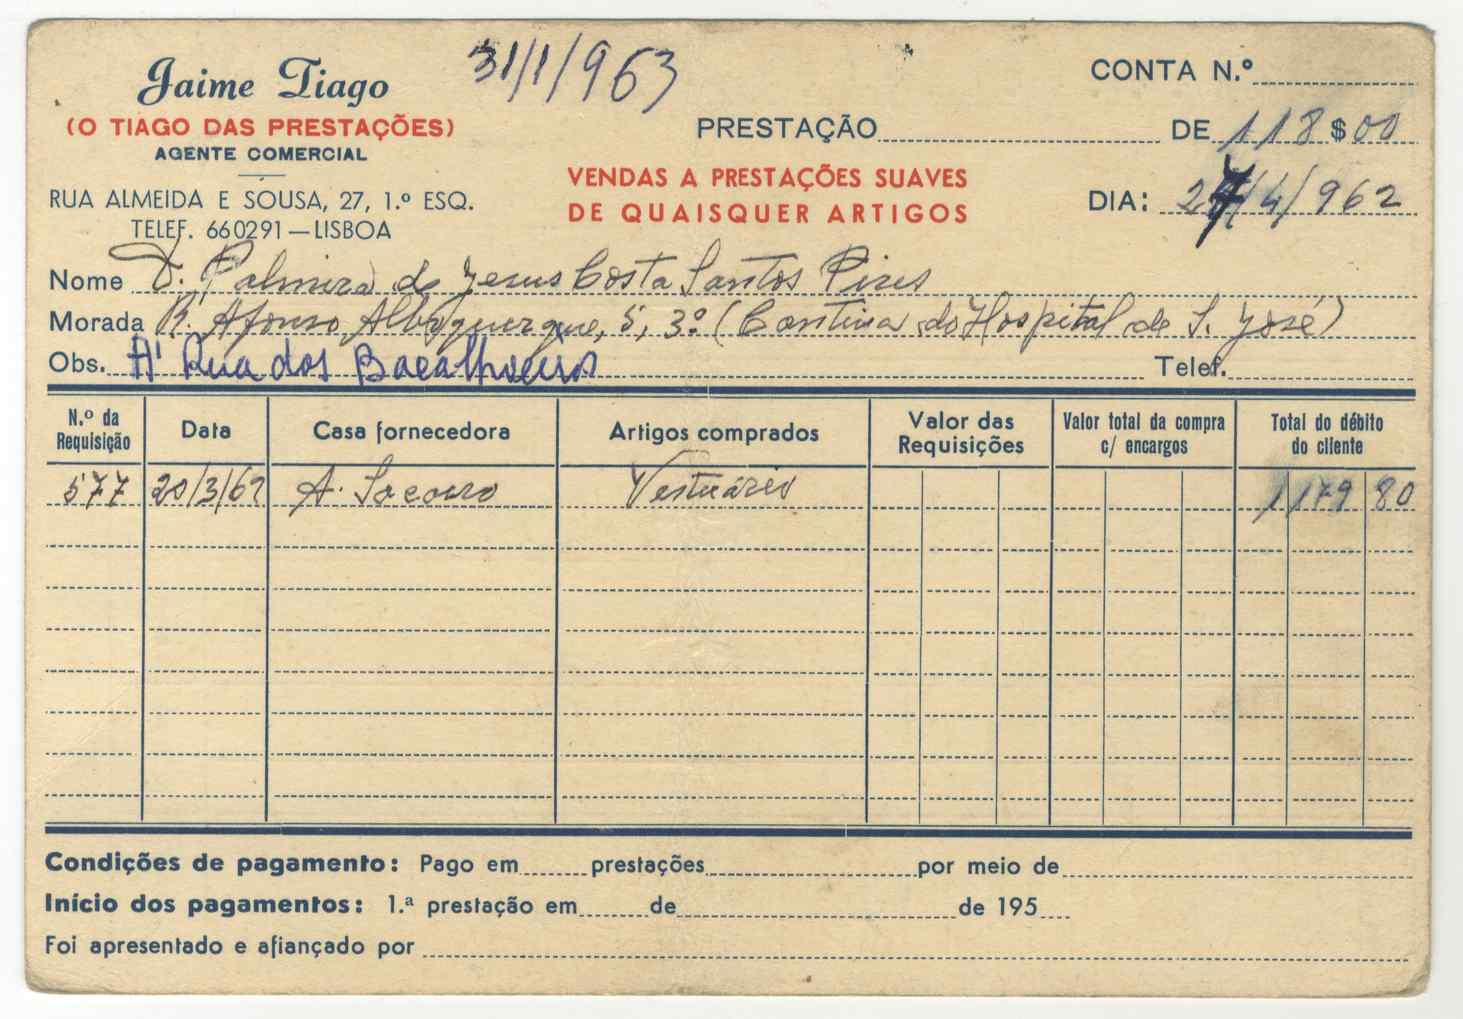 Jaime Tiago
(O TIAGO DAS PRESTAÇÕES)
AGENTE COMERCIAL
RUA ALMEIDA E SOUSA, 27, 1.º ESQ.
TELEF. 660291 — LISBOA
31/1/963
CONTA N.º
PRESTAÇÃO DE 118 $ 00
VENDAS A PRESTAÇÕES SUAVES
DE QUAISQUER ARTIGOS
DIA: 27/4/962
Nome D. Palmira de Jesus Costa Santos Pires
Morada R. Afonso Albuquerque, 5, 3.º (Cantina do Hospital de S. José)
Obs. A' Rua dos Bacalhoeiros Telef.
N.º da Requisição Data Casa fornecedora Artigos comprados Valor das Requisições Valor total da compra c/ encargos Total do débito do cliente
577 20/3/62 A. Socorro Vestuário 1179 80
Condições de pagamento: Pago em prestações por meio de
Início dos pagamentos: 1.ª prestação em de de 195
Foi apresentado e afiançado por